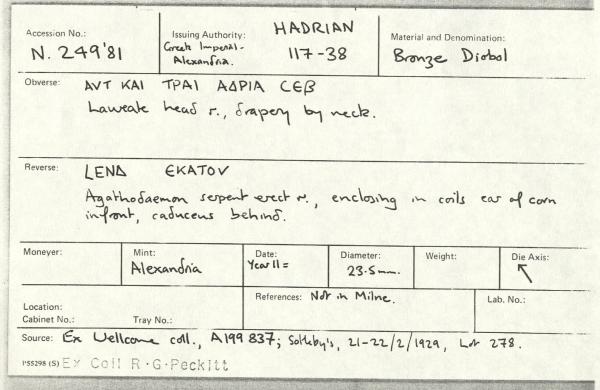 Accession No.:
N. 249'81
Issuing Authority:
HADRIAN
Greek Imperial-
Alexandria.
117-38
Material and Denomination:
Bronze Diobol
Obverse: AVT KAI TPAI AΔPIA CEB
Laureate head r., drapery by neck.
Reverse: LENΔ EKATOV
Agathodaemon serpent erect r., enclosing in coils ear of corn
infront, caduceus behind.
Moneyer:
Mint:
Alexandria
Date:
Year 11 =
Diameter:
23.5mm.
Weight:
Die Axis:
↖
Location:
Cabinet No.: Tray No.:
References: Not in Milne.
Lab. No.:
Source: Ex Wellcome coll., A199837; Sotheby's, 21-22/2/1929, Lot 278.
P55298 (S) Ex Coll R.G.Peckitt